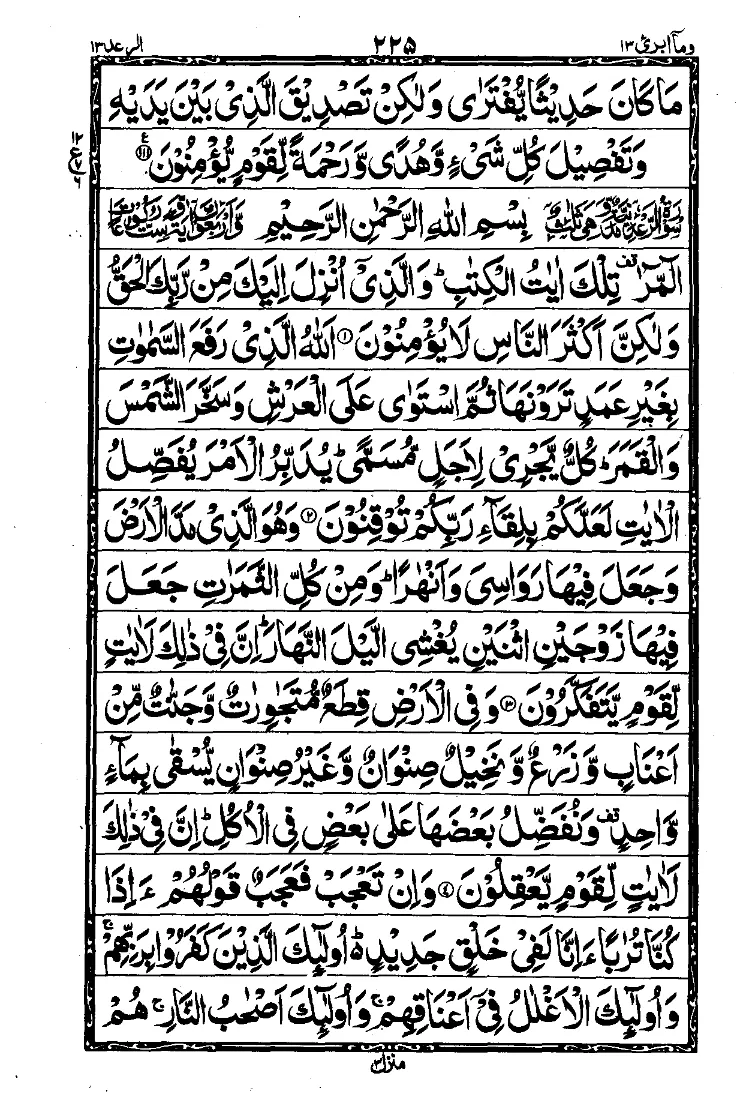 وما ابرئ ١٣ ٢٢٥ الرعد ١٣
مَا كَانَ حَدِيْثًا يُّفْتَرٰى وَلٰكِنْ تَصْدِيْقَ الَّذِىْ بَيْنَ يَدَيْهِ
وَتَفْصِيْلَ كُلِّ شَىْءٍ وَّهُدًى وَّرَحْمَةً لِّقَوْمٍ يُّؤْمِنُوْنَ ﴿١١١﴾ ع
١٢ ع ٧ ٦
بِسْمِ اللّٰهِ الرَّحْمٰنِ الرَّحِيْمِ
الٓمّٓرٰ ۗ تِلْكَ اٰيٰتُ الْكِتٰبِ ؕ وَالَّذِىْۤ اُنْزِلَ اِلَيْكَ مِنْ رَّبِّكَ الْحَقُّ
وَلٰكِنَّ اَكْثَرَ النَّاسِ لَا يُؤْمِنُوْنَ ﴿١﴾ اَللّٰهُ الَّذِىْ رَفَعَ السَّمٰوٰتِ
بِغَيْرِ عَمَدٍ تَرَوْنَهَا ثُمَّ اسْتَوٰى عَلَى الْعَرْشِ وَسَخَّرَ الشَّمْسَ
وَالْقَمَرَ ؕ كُلٌّ يَّجْرِىْ لِاَجَلٍ مُّسَمًّى ؕ يُدَبِّرُ الْاَمْرَ يُفَصِّلُ
الْاٰيٰتِ لَعَلَّكُمْ بِلِقَآءِ رَبِّكُمْ تُوْقِنُوْنَ ﴿٢﴾ وَهُوَ الَّذِىْ مَدَّ الْاَرْضَ
وَجَعَلَ فِيْهَا رَوَاسِىَ وَاَنْهٰرًا ؕ وَمِنْ كُلِّ الثَّمَرٰتِ جَعَلَ
فِيْهَا زَوْجَيْنِ اثْنَيْنِ يُغْشِى الَّيْلَ النَّهَارَ ؕ اِنَّ فِىْ ذٰلِكَ لَاٰيٰتٍ
لِّقَوْمٍ يَّتَفَكَّرُوْنَ ﴿٣﴾ وَفِى الْاَرْضِ قِطَعٌ مُّتَجٰوِرٰتٌ وَّجَنّٰتٌ مِّنْ
اَعْنَابٍ وَّزَرْعٌ وَّنَخِيْلٌ صِنْوَانٌ وَّغَيْرُ صِنْوَانٍ يُّسْقٰى بِمَآءٍ
وَّاحِدٍ ۗ وَنُفَضِّلُ بَعْضَهَا عَلٰى بَعْضٍ فِى الْاُكُلِ ؕ اِنَّ فِىْ ذٰلِكَ
لَاٰيٰتٍ لِّقَوْمٍ يَّعْقِلُوْنَ ﴿٤﴾ وَاِنْ تَعْجَبْ فَعَجَبٌ قَوْلُهُمْ ءَاِذَا
كُنَّا تُرٰبًا ءَاِنَّا لَفِىْ خَلْقٍ جَدِيْدٍ ؕ اُولٰٓئِكَ الَّذِيْنَ كَفَرُوْا بِرَبِّهِمْ ۚ
وَاُولٰٓئِكَ الْاَغْلٰلُ فِىْۤ اَعْنَاقِهِمْ ۚ وَاُولٰٓئِكَ اَصْحٰبُ النَّارِ ۚ هُمْ
منزل ٣